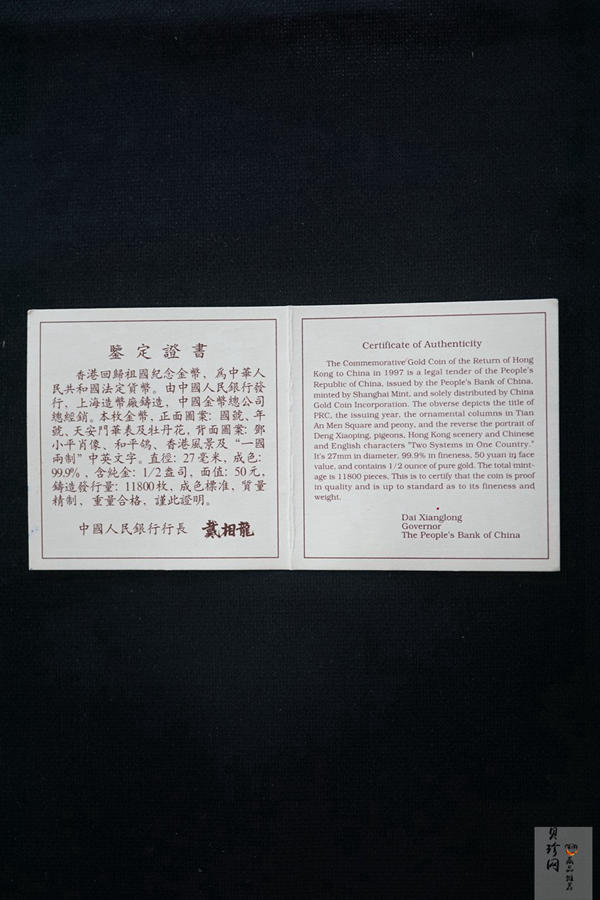 鑒定證書
香港回歸祖國紀念金幣，爲中華人
民共和國法定貨幣。由中國人民銀行發
行，上海造幣廠鑄造，中國金幣總公司
總經銷。本枚金幣，正面圖案：國號、年
號、天安門華表及牡丹花，背面圖案：鄧
小平肖像、和平鴿、香港風景及“一國
兩制”中英文字。直徑：27毫米，成色：
99.9%，含純金：1/2盎司，面值：50元，
鑄造發行量：11800枚，成色標准，質量
精制，重量合格，謹此證明。
中國人民銀行行長 戴相龍
Certificate of Authenticity
The Commemorative Gold Coin of the Return of Hong
Kong to China in 1997 is a legal tender of the People's
Republic of China, issued by the People's Bank of China,
minted by Shanghai Mint, and solely distributed by China
Gold Coin Incorporation. The obverse depicts the title of
PRC, the issuing year, the ornamental columns in Tian
An Men Square and peony, and the reverse the portrait of
Deng Xiaoping, pigeons, Hong Kong scenery and Chinese
and English characters "Two Systems in One Country."
It's 27mm in diameter, 99.9% in fineness, 50 yuan in face
value, and contains 1/2 ounce of pure gold. The total mint-
age is 11800 pieces. This is to certify that the coin is proof
in quality and is up to standard as to its fineness and
weight.
Dai Xianglong
Governor
The People's Bank of China
贝珍网